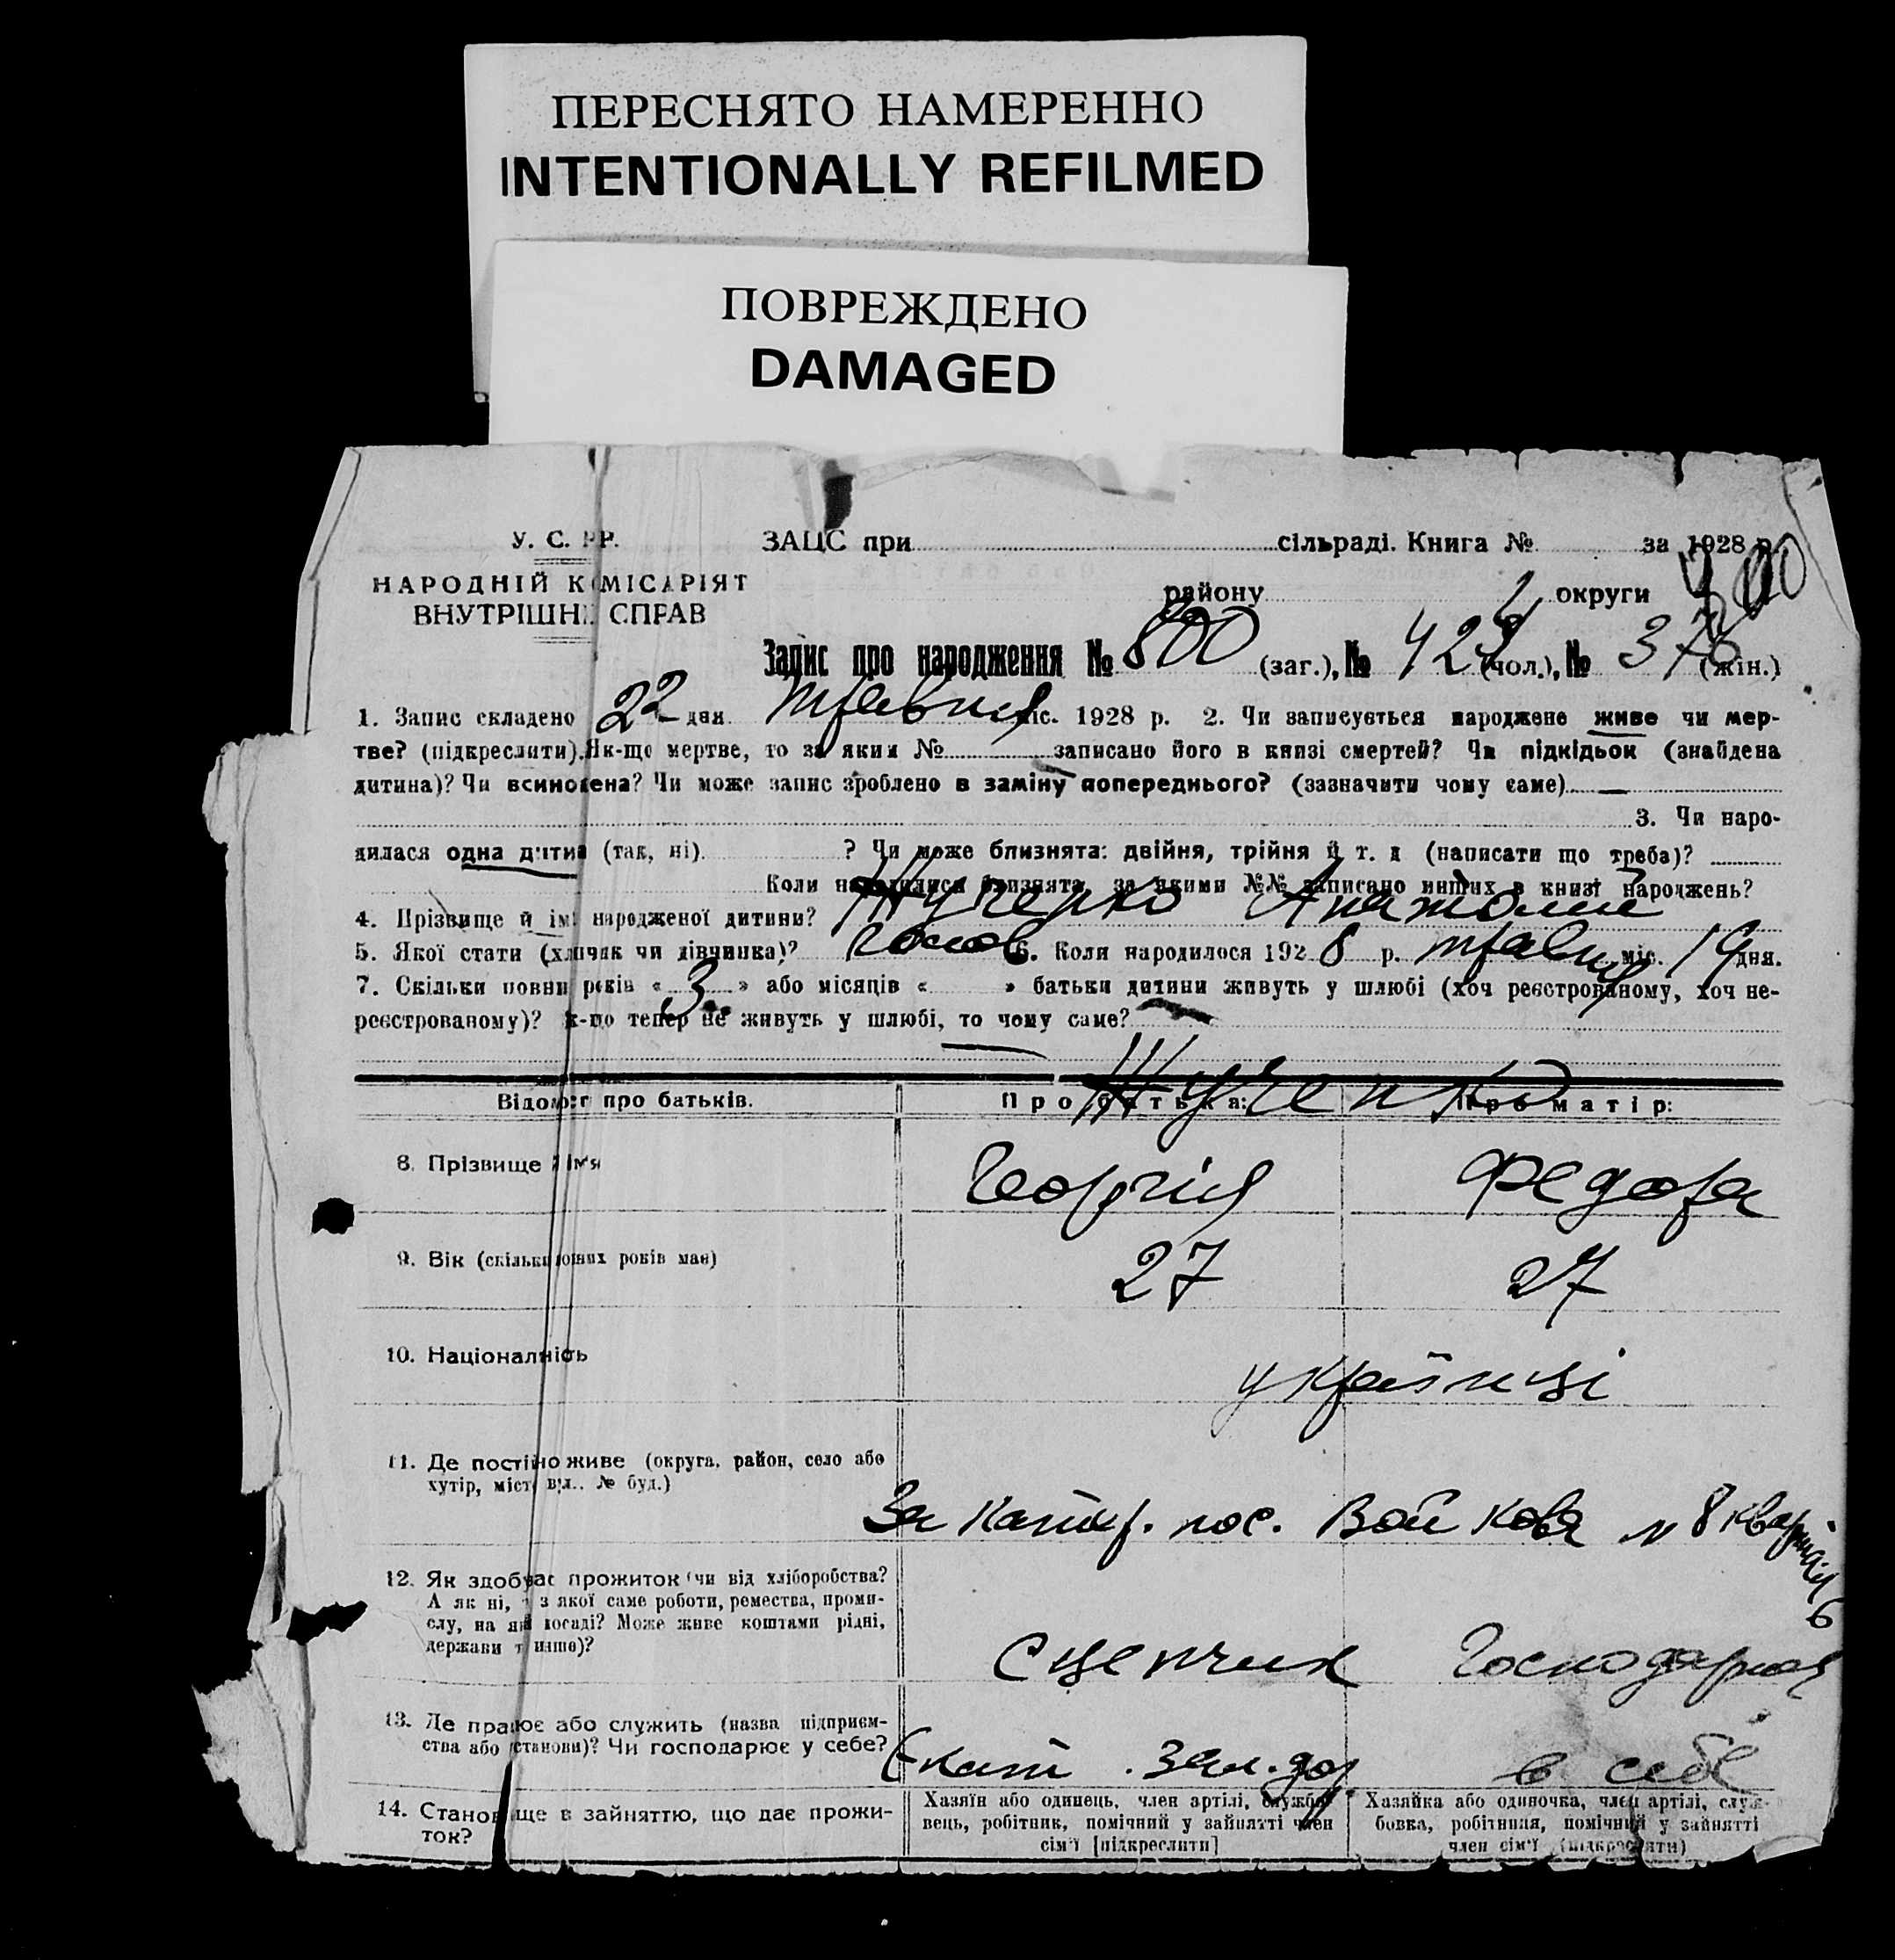 ПЕРЕСНЯТО НАМЕРЕННО
INTENTIONALLY REFILMED
ПОВРЕЖДЕНО
DAMAGED
У. С. РР.
НАРОДНІЙ КОМІСАРІЯТ
ВНУТРІШНІ СПРАВ
ЗАЦС при сільраді. Книга № за 1928 р.
району округи
Запис про народження № 800 (заг.), № 424 (чол.), № 376 (жін.)
1. Запис складено 22 дня травня міс. 1928 р. 2. Чи записується народжене живе чи мер-
тве? (підкреслити). Як-що мертве, то за яким № записано його в книзі смертей? Чи підкідьок (знайдена
дитина)? Чи всиновлена? Чи може запис зроблено в заміну попереднього? (зазначити чому саме)
3. Чи наро-
дилася одна дитина (так, ні). ? Чи може близнята: двійня, трійня й т. д (написати що треба)?
Коли народилися близнята, за якими №№ записано инших в книзі народжень?
4. Прізвище й ім'я народженої дитини?
5. Якої стати (хлопчик чи дівчинка)? 6. Коли народилося 1928 р. травня міс. 19 дня.
7. Скільки повних років « 3 » або місяців « » батьки дитини живуть у шлюбі (хоч реєстрованому, хоч не-
реєстрованому)? Як-що тепер не живуть у шлюбі, то чому саме?
Відомост про батьків. Про батька: Про матір:
8. Прізвище й ім'я Георгій Федора
9. Вік (скільки повних років має) 27 27
10. Національність українці
11. Де постійно живе (округа, район, село або
хутір, місто вул.. № буд.)
пос. Войкова № 8
12. Як здобуває прожиток (чи від хліборобства?
А як ні, то з якої саме роботи, ремества, проми-
слу, на якій посаді? Може живе коштами рідні,
держави то инше)?
Сцепчик Господарює
13. Де працює або служить (назва підприєм-
ства або установи)? Чи господарює у себе?
Кат. зал. дор. в себе
14. Становище в зайняттю, що дає прожи-
ток?
Хазяїн або одинець, член артілі, службо-
вець, робітник, помічний у зайнятті член
сім'ї [підкреслити]
Хазяйка або одиночка, член артілі, служ-
бовка, робітниця, помічний у зайнятті
член сім'ї (підкреслити)